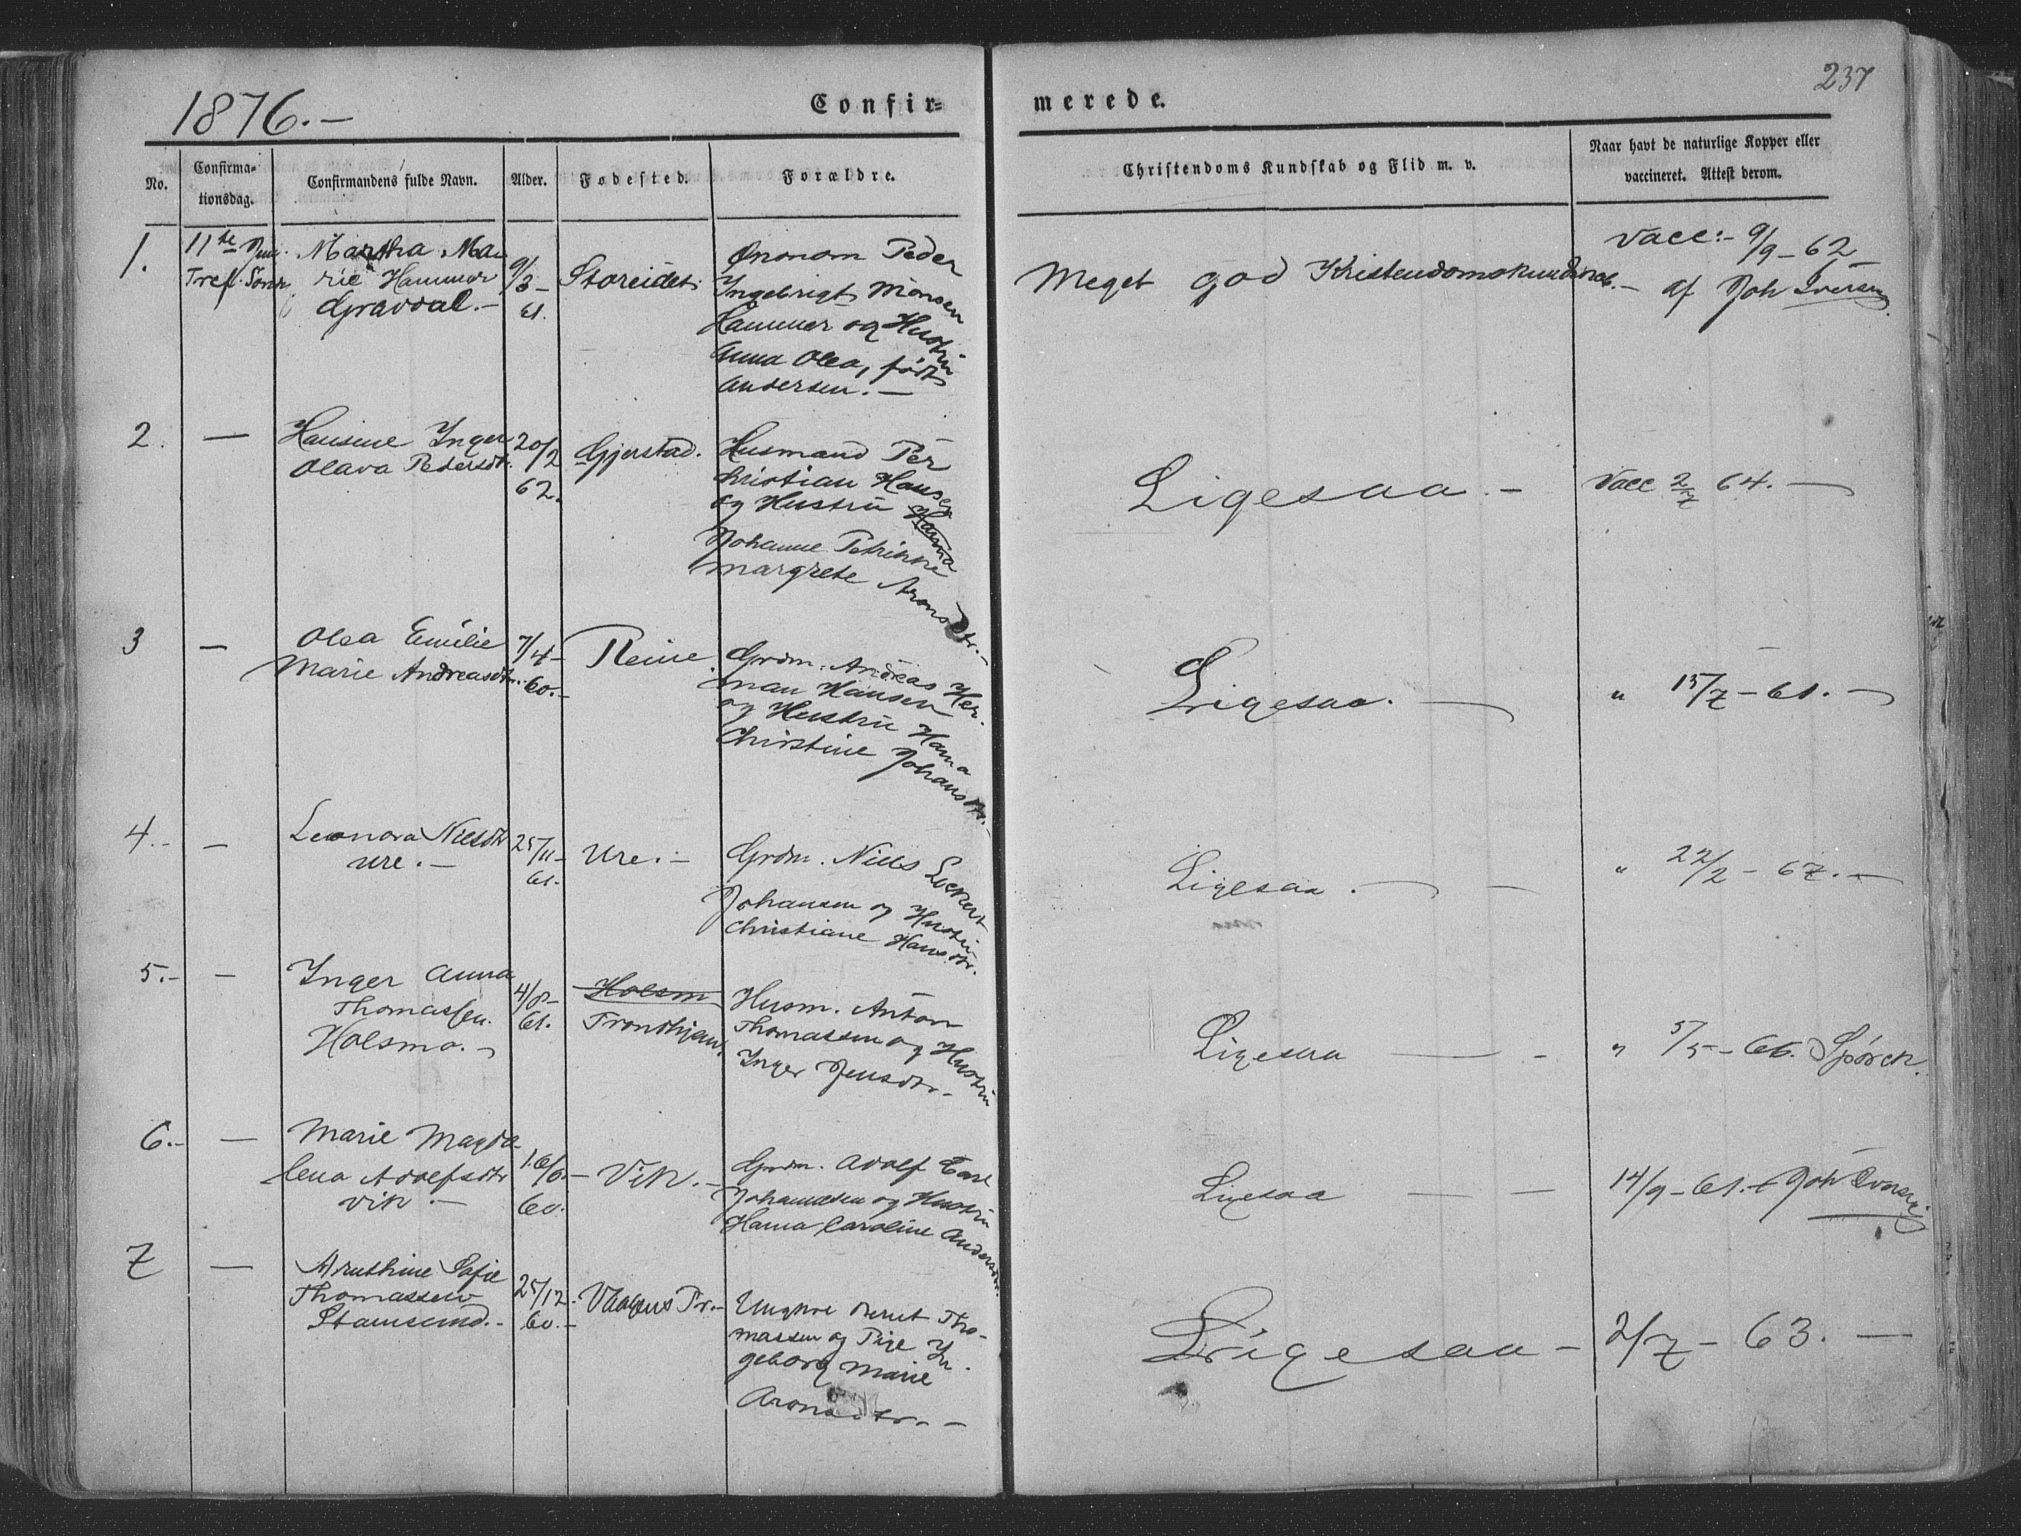 237
1876.-
Confir=
merede.
No.
Confirma-
tionsdag.
Confirmandens fulde Navn.
Alder.
Fødested.
Forældre.
Christendoms Kundskab og Flid m. v.
Naar havt de naturlige Kopper eller
vaccineret. Attest derom.
1.
11te Juni
Tref. Sønd
Martha Ma
rie Hammer
Gravdal.-
9/3-
61.
Storeidet
Ønonom Peder
Ingebrigt Monsen
Hammer og Hustru
Anna Olea, født
Andersen.-
Meget god Kristendomskundskab.-
Vacc:- 9/9-62
af Joh Iversen
2.
—
Hansine Inger
Olava Pedersdtr.
20/2
62.
Gjerstad.
Husmand Per
Christian Hansen
og Hustru Hanna
Johanne Petrikke
Margrete Aronsdtr.-
Ligesaa.-
Vacc 2/7 64.-
3
—
Olea Emilie
Marie Andreasdtr.
7/4-
60.-
Reine.
Grdm. Andreas Her-
man Hansen
og Hustru Hanna
Christine Johansdtr.-
Ligesaa.-
" 15/7-61.-
4.-
—
Leonora Nilsdtr
Ure.-
25/11-
61.
Ure.-
Grdm. Nills Lockert
Johansen og Hustru
Christiane Hansdtr.
Ligesaa.-
" 22/2-67.-
5.-
—
Inger Anna
Thomassen
Holsmo.-
4/8-
61.
Holsm
Trondhjem.
Husm. Anton
Thomassen og Hustru
Inger Jensdtr.-
Ligesaa - -
" 5/5-66. Spørck.
6.-
—
Marie Magda-
lena Adolfsdtr
Vik.-
16/6-
60.
Vik.-
Grdm. Adolf Carl
Johannesen og Hustru
Hanna Caroline Andersdtr.
Ligesaa - -
14/9-61. af Joh Iversen
7
—
Arnthine Sofie
Thomassen
Stamsund.-
25/12.
60.-
Vaagens Pr.-
Ungkrl Bernt Tho-
massen og Pige In-
geborg Marie
Aronsdtr.-
Ligesaa-
2/7-63.-